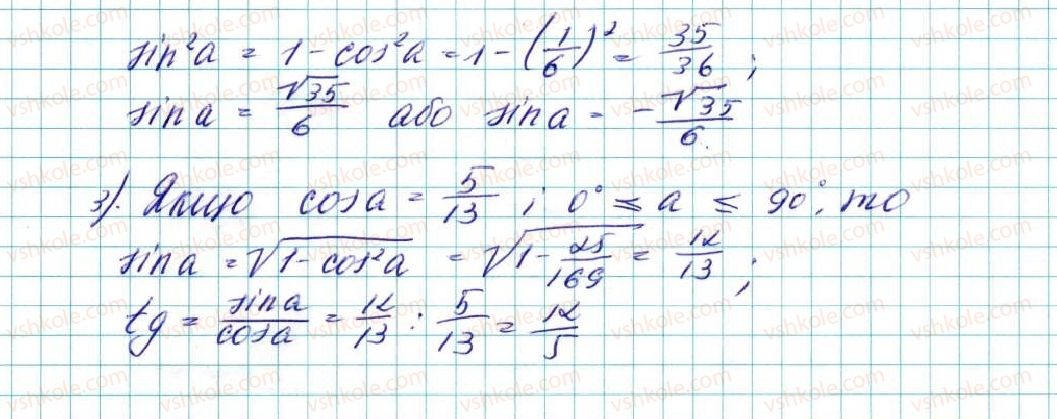 sin²a = 1 - cos²a = 1 - (1/6)² = 35/36 ;
sin a = √35/6 або sin a = -√35/6.
3). Якщо cos a = 5/13 ; 0° ≤ a ≤ 90°; то
sin a = √(1 - cos²a) = √(1 - 25/169) = 12/13 ;
tg = sin a/cos a = 12/13 : 5/13 = 12/5